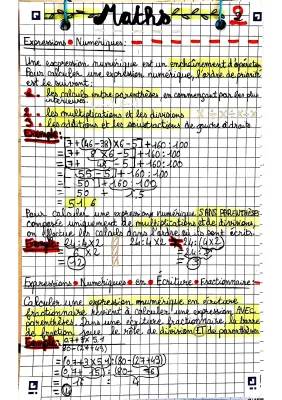 Maths 2
Expressions Numériques:
Une expression numérique est un enchaînement d'opérations
Pour calculer une expression numérique, l'ordre de priorité
est le suivant:
1. les calculs entre parenthèses, en commençant par les plus
intérieures.
2. les multiplications et les divisions
3. les additions et les soustractions de gauche à droite
Exemple:
= [7+(46-38)×6-5]+160:100
= [7+ 8 ×6-5]+160:100
= [7+ 48 -5]+160:100
= [55-5]+160:100
= 50 + 160:100
= 50 + 1,6
= 51,6
Pour calculer une expression numérique SANS PARENTHÈSES
composée uniquement de multiplications et de divisions,
on effectue les calculs dans l'ordre où ils sont écrits.
24:4×2 24:4×2 24:(4×2)
= 6×2 = 24:8
= 12
Expressions Numériques en Écriture Fractionnaire
Calculer une expression numérique en écriture
fractionnaire revient à calculer une expression AVEC
parenthèses. Dans une écriture fractionnaire, la barre
de fraction joue le rôle de division ET de parenthèses.
80-(27+43)